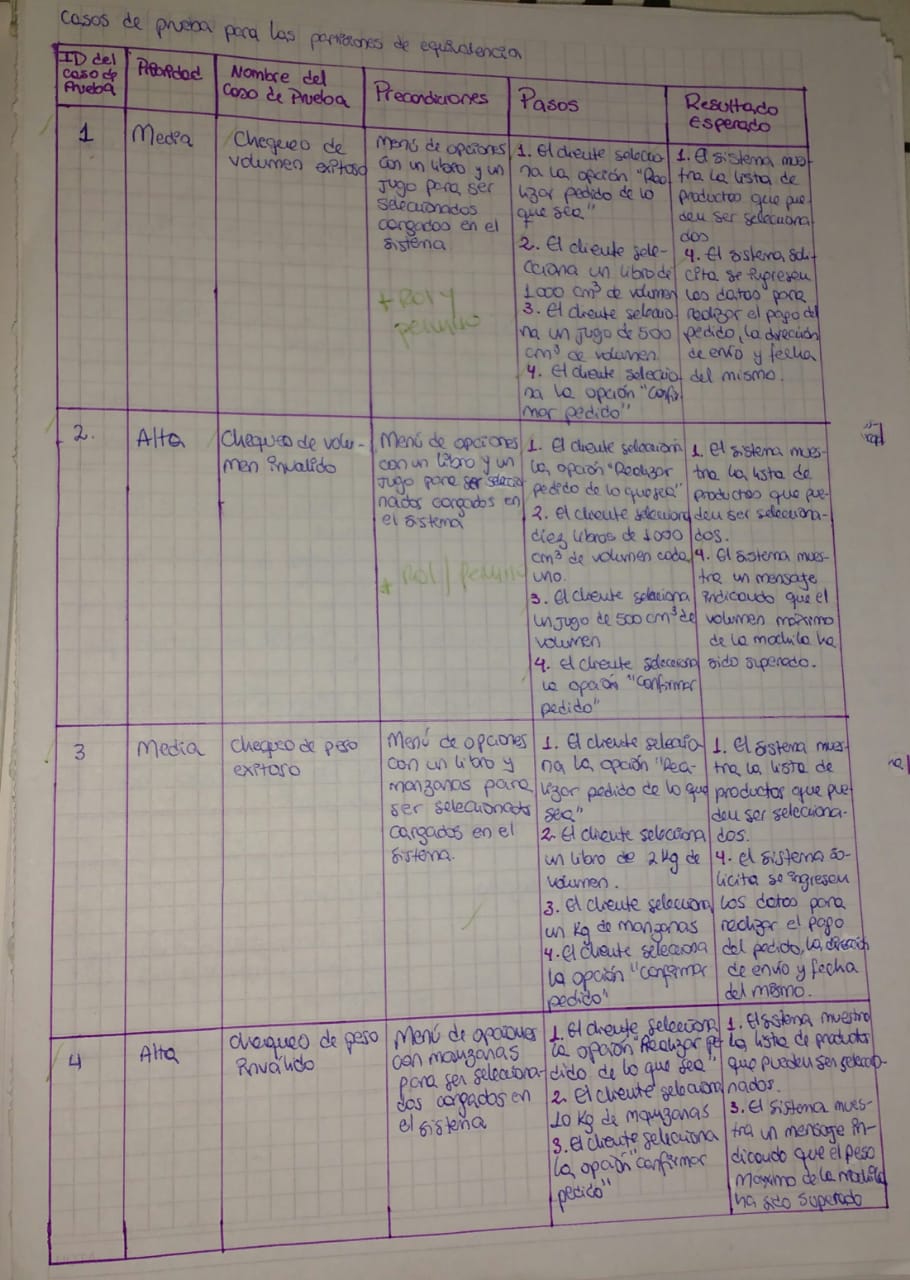 Casos de prueba para las particiones de equivalencia
ID del
caso de
Prueba
Prioridad
Nombre del
Caso de Prueba
Precondiciones
Pasos
Resultado
Esperado
1
Media
Chequeo de
volumen exitoso
Menú de opciones
con un libro y un
jugo para ser
seleccionados
cargados en el
sistema
+ Rol y
permiso
1. El cliente seleccio
na la opción "Rea
lizar pedido de lo
que sea"
2. El cliente sele-
cciona un libro de
1000 cm³ de volumen
3. El cliente seleccio
na un jugo de 500
cm³ de volumen
4. El cliente seleccio
na la opción "Confir
mar pedido"
1. El sistema mues
tra la lista de
productos que pue
den ser selecciona
dos
4. El sistema soli-
cita se ingresen
los datos para
realizar el pago del
pedido, la dirección
de envío y fecha
del mismo.
2.
Alta
Chequeo de volu-
men invalido
Menú de opciones
con un libro y un
jugo para ser seleccio
nados cargados en
el sistema
+ Rol / permiso
1. El cliente selecciona
la opción "Realizar
pedido de lo que sea"
2. El cliente selecciona
diez libros de 1000
cm³ de volumen cada
uno.
3. El cliente selecciona
un jugo de 500 cm³ de
volumen
4. El cliente selecciona
la opción "Confirmar
pedido"
1. El sistema mues-
tra la lista de
productos que pue-
den ser selecciona-
dos.
4. El sistema mues-
tra un mensaje
indicando que el
volumen máximo
de la mochila ha
sido superado.
3
Media
Chequeo de peso
exitoso
Menú de opciones
con un libro y
manzanas para
ser seleccionados
cargados en el
sistema.
1. El cliente seleccio
na la opción "Rea-
lizar pedido de lo que
sea"
2. El cliente selecciona
un libro de 2 kg de
volumen.
3. El cliente selecciona
un kg de manzanas
4. El cliente selecciona
la opción "Confirmar
pedido"
1. El sistema mues
tra la lista de
productos que pue
den ser selecciona-
dos.
4. El sistema so-
licita se ingresen
los datos para
realizar el pago
del pedido, la dirección
de envío y fecha
del mismo.
4
Alta
Chequeo de peso
inválido
Menú de opciones
con manzanas
para ser selecciona-
das cargados en
el sistema
1. El cliente selecciona
la opción "Realizar pe
dido de lo que sea"
2. El cliente selecciona
10 kg de manzanas
3. El cliente selecciona
la opción "Confirmar
pedido"
1. El sistema muestra
la lista de productos
que pueden ser seleccio-
nados.
3. El sistema mues-
tra un mensaje in-
dicando que el peso
máximo de la mochila
ha sido superado